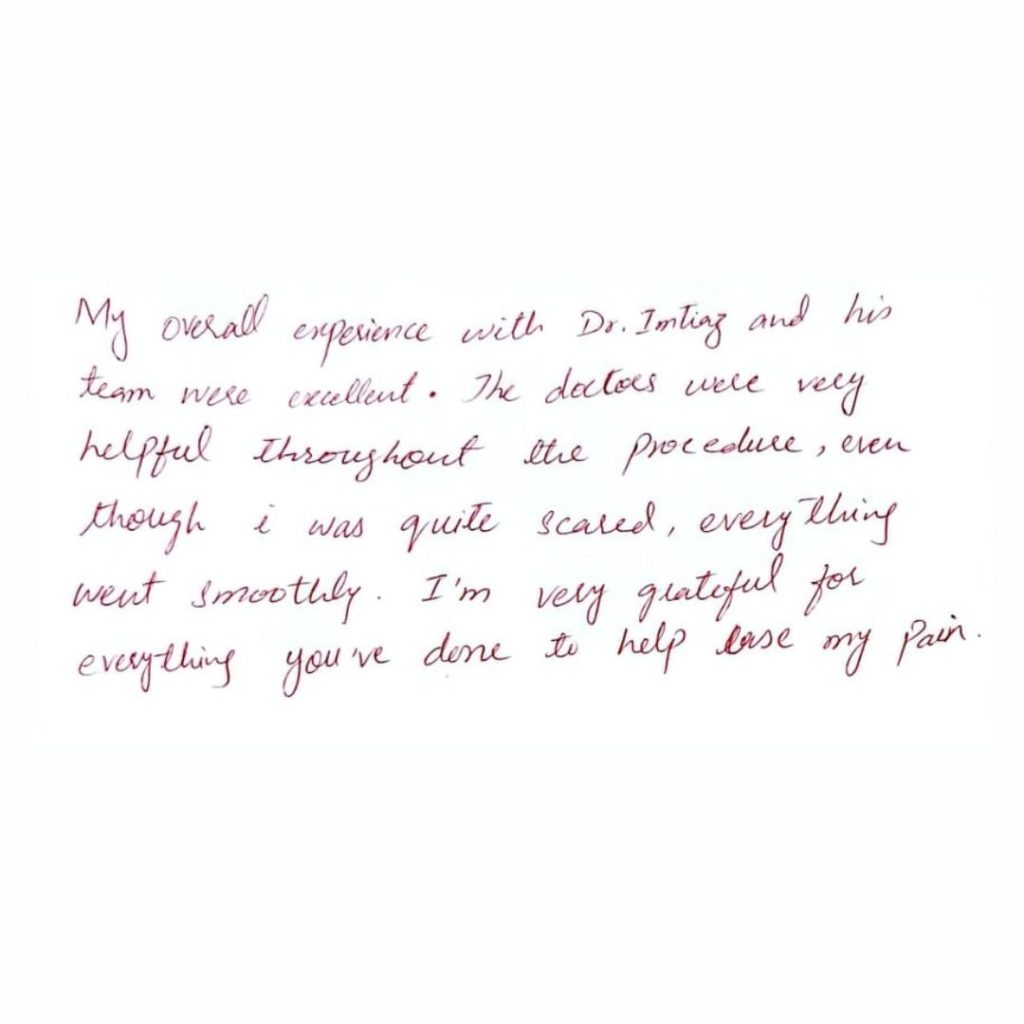 My overall experience with Dr. Imtiaz and his
team were excellent. The doctors were very
helpful throughout the procedure, even
though i was quite scared, everything
went smoothly. I'm very grateful for
everything you've done to help ease my pain.